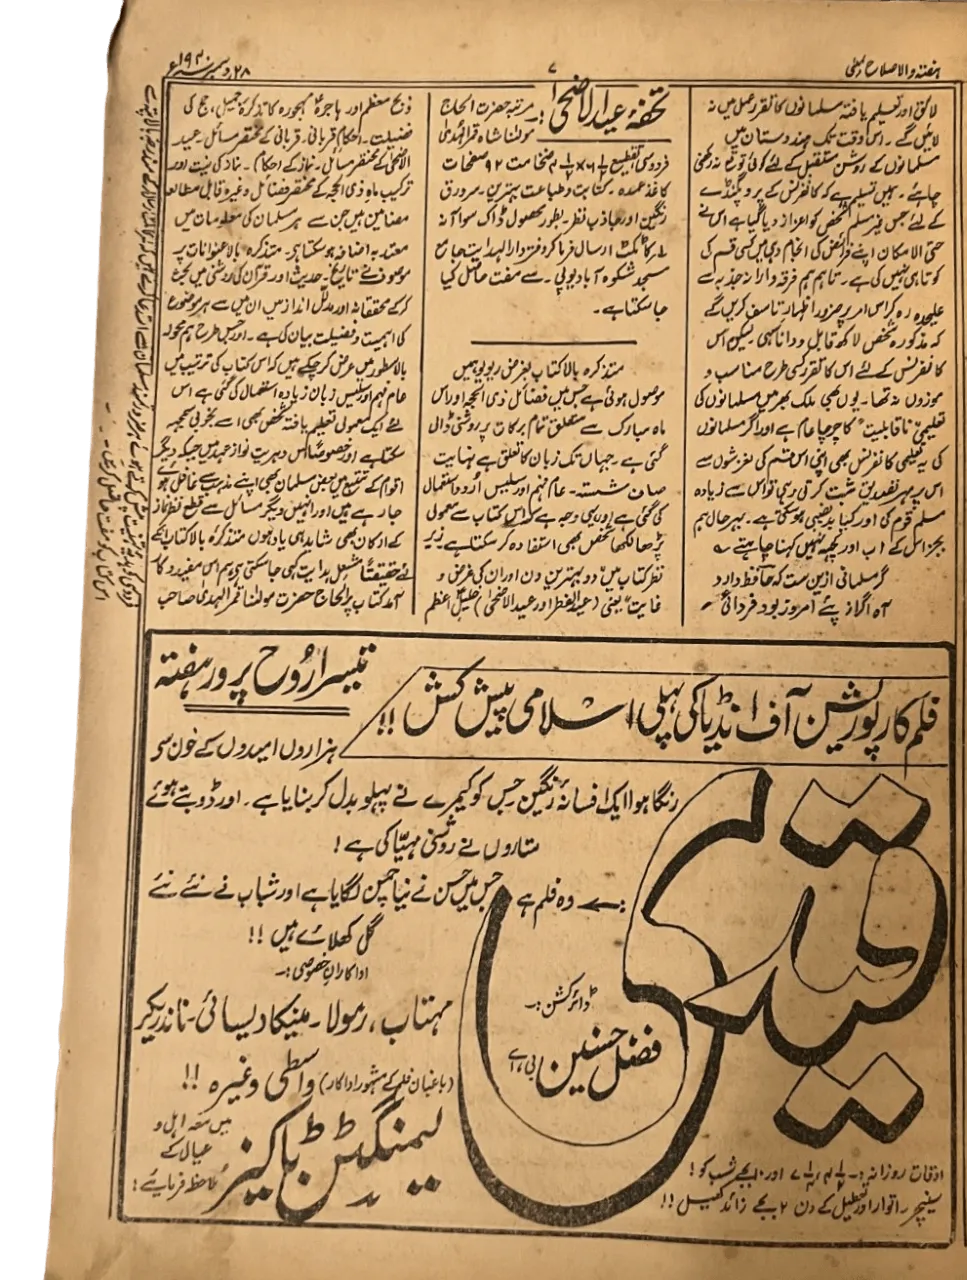 ہفتہ وار الاصلاح بمبئی
۷
۲۸ دسمبر ۱۹۴۰ء
لائق اور تعلیم یافتہ مسلمانوں کا تقرر عمل میں نہ
لائیں گے۔ اس وقت تک ہندوستان میں
مسلمانوں کے روشن مستقبل کے لئے کوئی توقع نہ رکھنی
چاہئے۔ ہمیں تسلیم ہے کہ کانفرنس کے پروپگنڈے
کے لئے جس غیر مسلم شخص کو اعزاز دیا گیا ہے اس نے
حتی الامکان اپنے فرائض کی انجام دہی میں کسی قسم کی
کوتاہی نہیں کی ہے۔ تاہم ہم فرقہ وارانہ جذبہ سے
علیحدہ رہ کر اس امر پر ضرور اظہار تاسف کریں گے
کہ مذکورہ شخص لاکھ قابل و دانا سہی لیکن اس
کانفرنس کے لئے اس کا تقرر کسی طرح مناسب و
موزوں نہ تھا۔ یوں بھی ملک بھر میں مسلمانوں کی
تعلیمی "ناقابلیت" کا چرچا عام ہے اور اگر مسلمانوں
کی یہ تعلیمی کانفرنس بھی اپنی اس قسم کی لغزشوں سے
اس پر مہر تصدیق ثبت کرتی رہی تو اس سے زیادہ
مسلم قوم کی اور کیا بدنصیبی ہو سکتی ہے۔ بہرحال ہم
بجز اس کے اب اور کچھ نہیں کہنا چاہتے
گر مسلمانی ازیں ست کہ حافظ دارد
آہ اگر از پئے امروز بود فردائے
تحفۂ عید الاضحیٰ:۔
مرتبہ حضرت الحاج
مولانا شاہ قمر الہدیٰ
فردوسی تقطیع ضخامت ۹۲ صفحات
کاغذ عمدہ۔ کتابت و طباعت بہترین۔ سرورق
رنگین اور جاذب نظر۔ بطور محصول ڈاک سوا آنہ
کا ٹکٹ ارسال فرما کر دفتر دار الہدایت جامع
مسجد شکوہ آباد یو پی۔ سے مفت حاصل کیا
جا سکتا ہے۔
متذکرہ بالا کتاب بغرض ریویو ہمیں
موصول ہوئی ہے جس میں فضائل ذی الحجہ اور اس
ماہ مبارک سے متعلق تمام برکات پر روشنی ڈالی
گئی ہے۔ جہاں تک زبان کا تعلق ہے نہایت
صاف شستہ۔ عام فہم اور سلیس اردو استعمال
کی گئی ہے اور یہی وجہ ہے کہ اس کتاب سے معمولی
پڑھا لکھا شخص بھی استفادہ کر سکتا ہے زیر
نظر کتاب میں دو بہترین دن اور ان کی غرض و
غایت "یعنی (عید الفطر اور عید الاضحیٰ) خلیل اعظم
ذبیح معظم اور ہاجرۂ مہجورہ کا تذکرۂ جمیل، حج کی
فضیلت۔ احکام قربانی۔ قربانی کے مختصر مسائل۔ عید
الاضحیٰ کے مختصر مسائل۔ نماز کے احکام۔ نماز کی نیت اور
ترکیب ماہ ذی الحجہ کے مختصر فضائل وغیرہ قابل مطالعہ
مضامین ہیں جن سے ہر مسلمان کی معلومات میں
معتد بہ اضافہ ہو سکتا ہے۔ متذکرہ بالا عنوانات پر
موصوف نے تاریخ۔ حدیث اور قرآن کی روشنی میں بحث
کر کے محققانہ اور مدلل انداز میں ان میں سے ہر موضوع
کی اہمیت و فضیلت بیان کی ہے۔ اور جس طرح ہم خود
بالا سطور میں عرض کر چکے ہیں کہ اس کتاب کی ترتیب میں
عام فہم اور سلیس زبان زیادہ استعمال کی گئی ہے اس
لئے ایک معمولی تعلیم یافتہ شخص بھی اسے بخوبی سمجھ
سکتا ہے اور خصوصاً اس دہریت نواز عہد میں جبکہ دیگر
اقوام کے تتبع میں بعض مسلمان بھی اپنے مذہب سے غافل ہوئے
جا رہے ہیں اور انہیں دیگر مسائل سے قطع نظر نماز
کے ارکان بھی شاید ہی یاد ہوں متذکرہ بالا کتاب انکے
لئے حقیقتاً مشعل ہدایت کہی جا سکتی ہے ہم اس مفید و کار
آمد کتاب پر الحاج حضرت مولانا قمر الہدیٰ صاحب
اس کتاب کو مفت حاصل کریں۔
تیسرا روح پرور ہفتہ
فلم کارپوریشن آف انڈیا کی پہلی اسلامی پیش کش !!
ہزاروں امیدوں کے خون سے
رنگا ہوا ایک افسانۂ رنگین جس کو کیمرے نے پہلو بدل کر بنایا ہے۔ اور ڈوبتے ہوئے
ستاروں نے روشنی مہیا کی ہے!
قیدی
وہ فلم ہے جس میں حسن نے نیا چمن لگایا ہے اور شباب نے نئے نئے
گل کھلائے ہیں !!
اداکاران خصوصی:۔
مہتاب، رمولا۔ مینکا دیسائی۔ ناندریکر
(باغبان فلم کے مشہور اداکار) واسطی وغیرہ !!
ڈائرکشن:۔
فضل حسنین بی، اے
لیمنگٹن ٹاکیز
میں معہ اہل و
عیال کے
ملاحظہ فرمایئے!
اوقات روزانہ:۔ ۴½، ۷½ اور ۱۰ بجے شب کو!
سنیچر، اتوار اور تعطیل کے دن ۲ بجے زائد کھیل !!